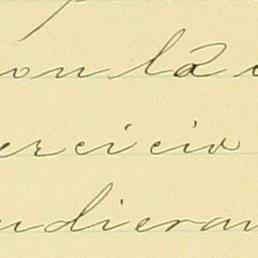 con la
ercicio
udieran